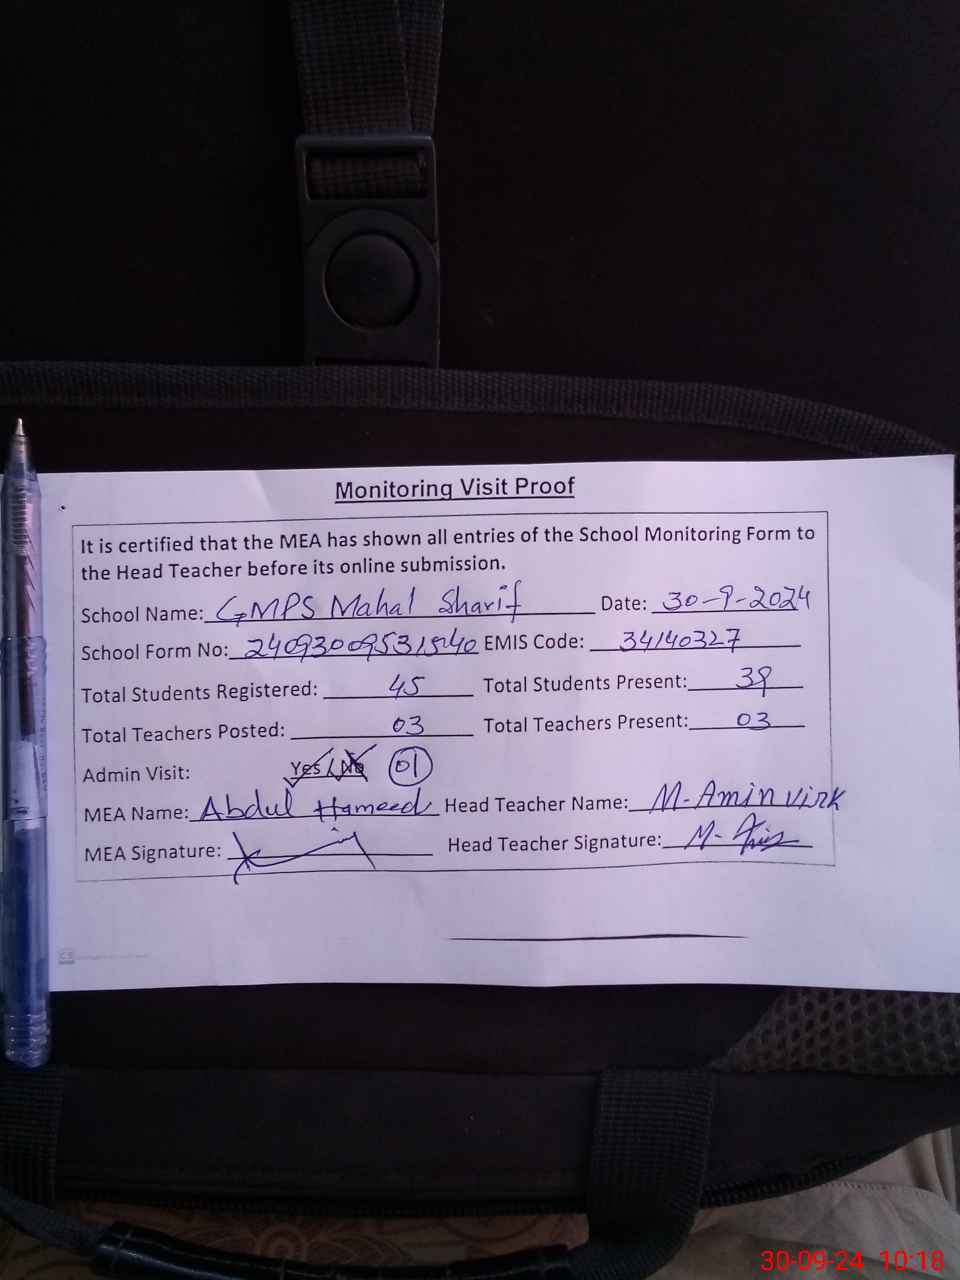 Monitoring Visit Proof
It is certified that the MEA has shown all entries of the School Monitoring Form to
the Head Teacher before its online submission.
School Name: GMPS Mahal Sharif Date: 30-9-2024
School Form No: EMIS Code: 34140327
Total Students Registered: 45 Total Students Present: 39
Total Teachers Posted: 03 Total Teachers Present: 03
Admin Visit: Yes / No 01
MEA Name: Abdul Hameed Head Teacher Name: M-Amin virk
MEA Signature: Head Teacher Signature: M-
CS
30-09-24 10:18